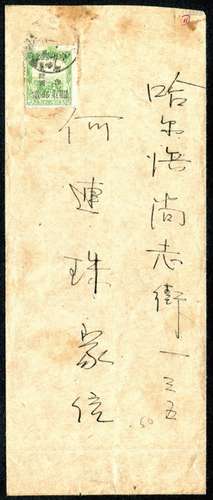 哈尔滨尚志街一三五
何連珠家信